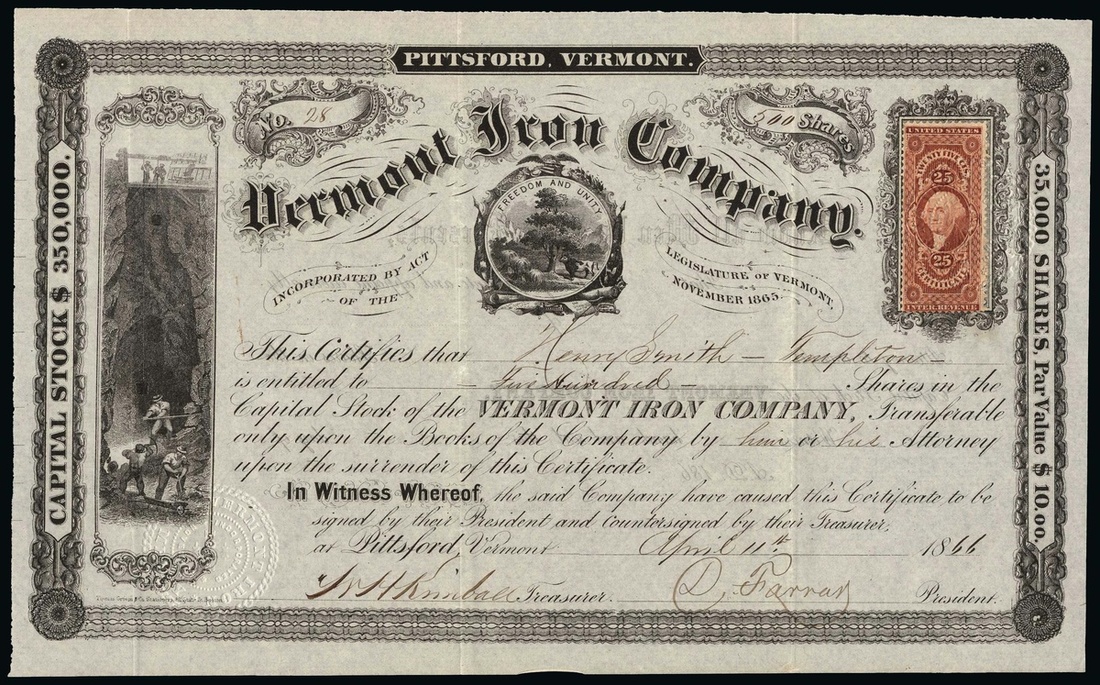 PITTSFORD, VERMONT.
No. 28
500 Shares
Vermont Iron Company.
FREEDOM AND UNITY
INCORPORATED BY ACT
OF THE
LEGISLATURE OF VERMONT
NOVEMBER 1865.
UNITED STATES
TWENTY FIVE CTS.
25
25
CERTIFICATE
INTER. REVENUE
CAPITAL STOCK $ 350,000.
35,000 SHARES, Par Value $ 10.00.
This Certifies that Henry Smith - Templeton -
is entitled to - Five Hundred - Shares in the
Capital Stock of the VERMONT IRON COMPANY, Transferable
only upon the Books of the Company by him or his Attorney
upon the surrender of this Certificate.
In Witness Whereof, the said Company have caused this Certificate to be
signed by their President and countersigned by their Treasurer,
at Pittsford, Vermont April 11th 1866
Kimball Treasurer. D. Farrar President.